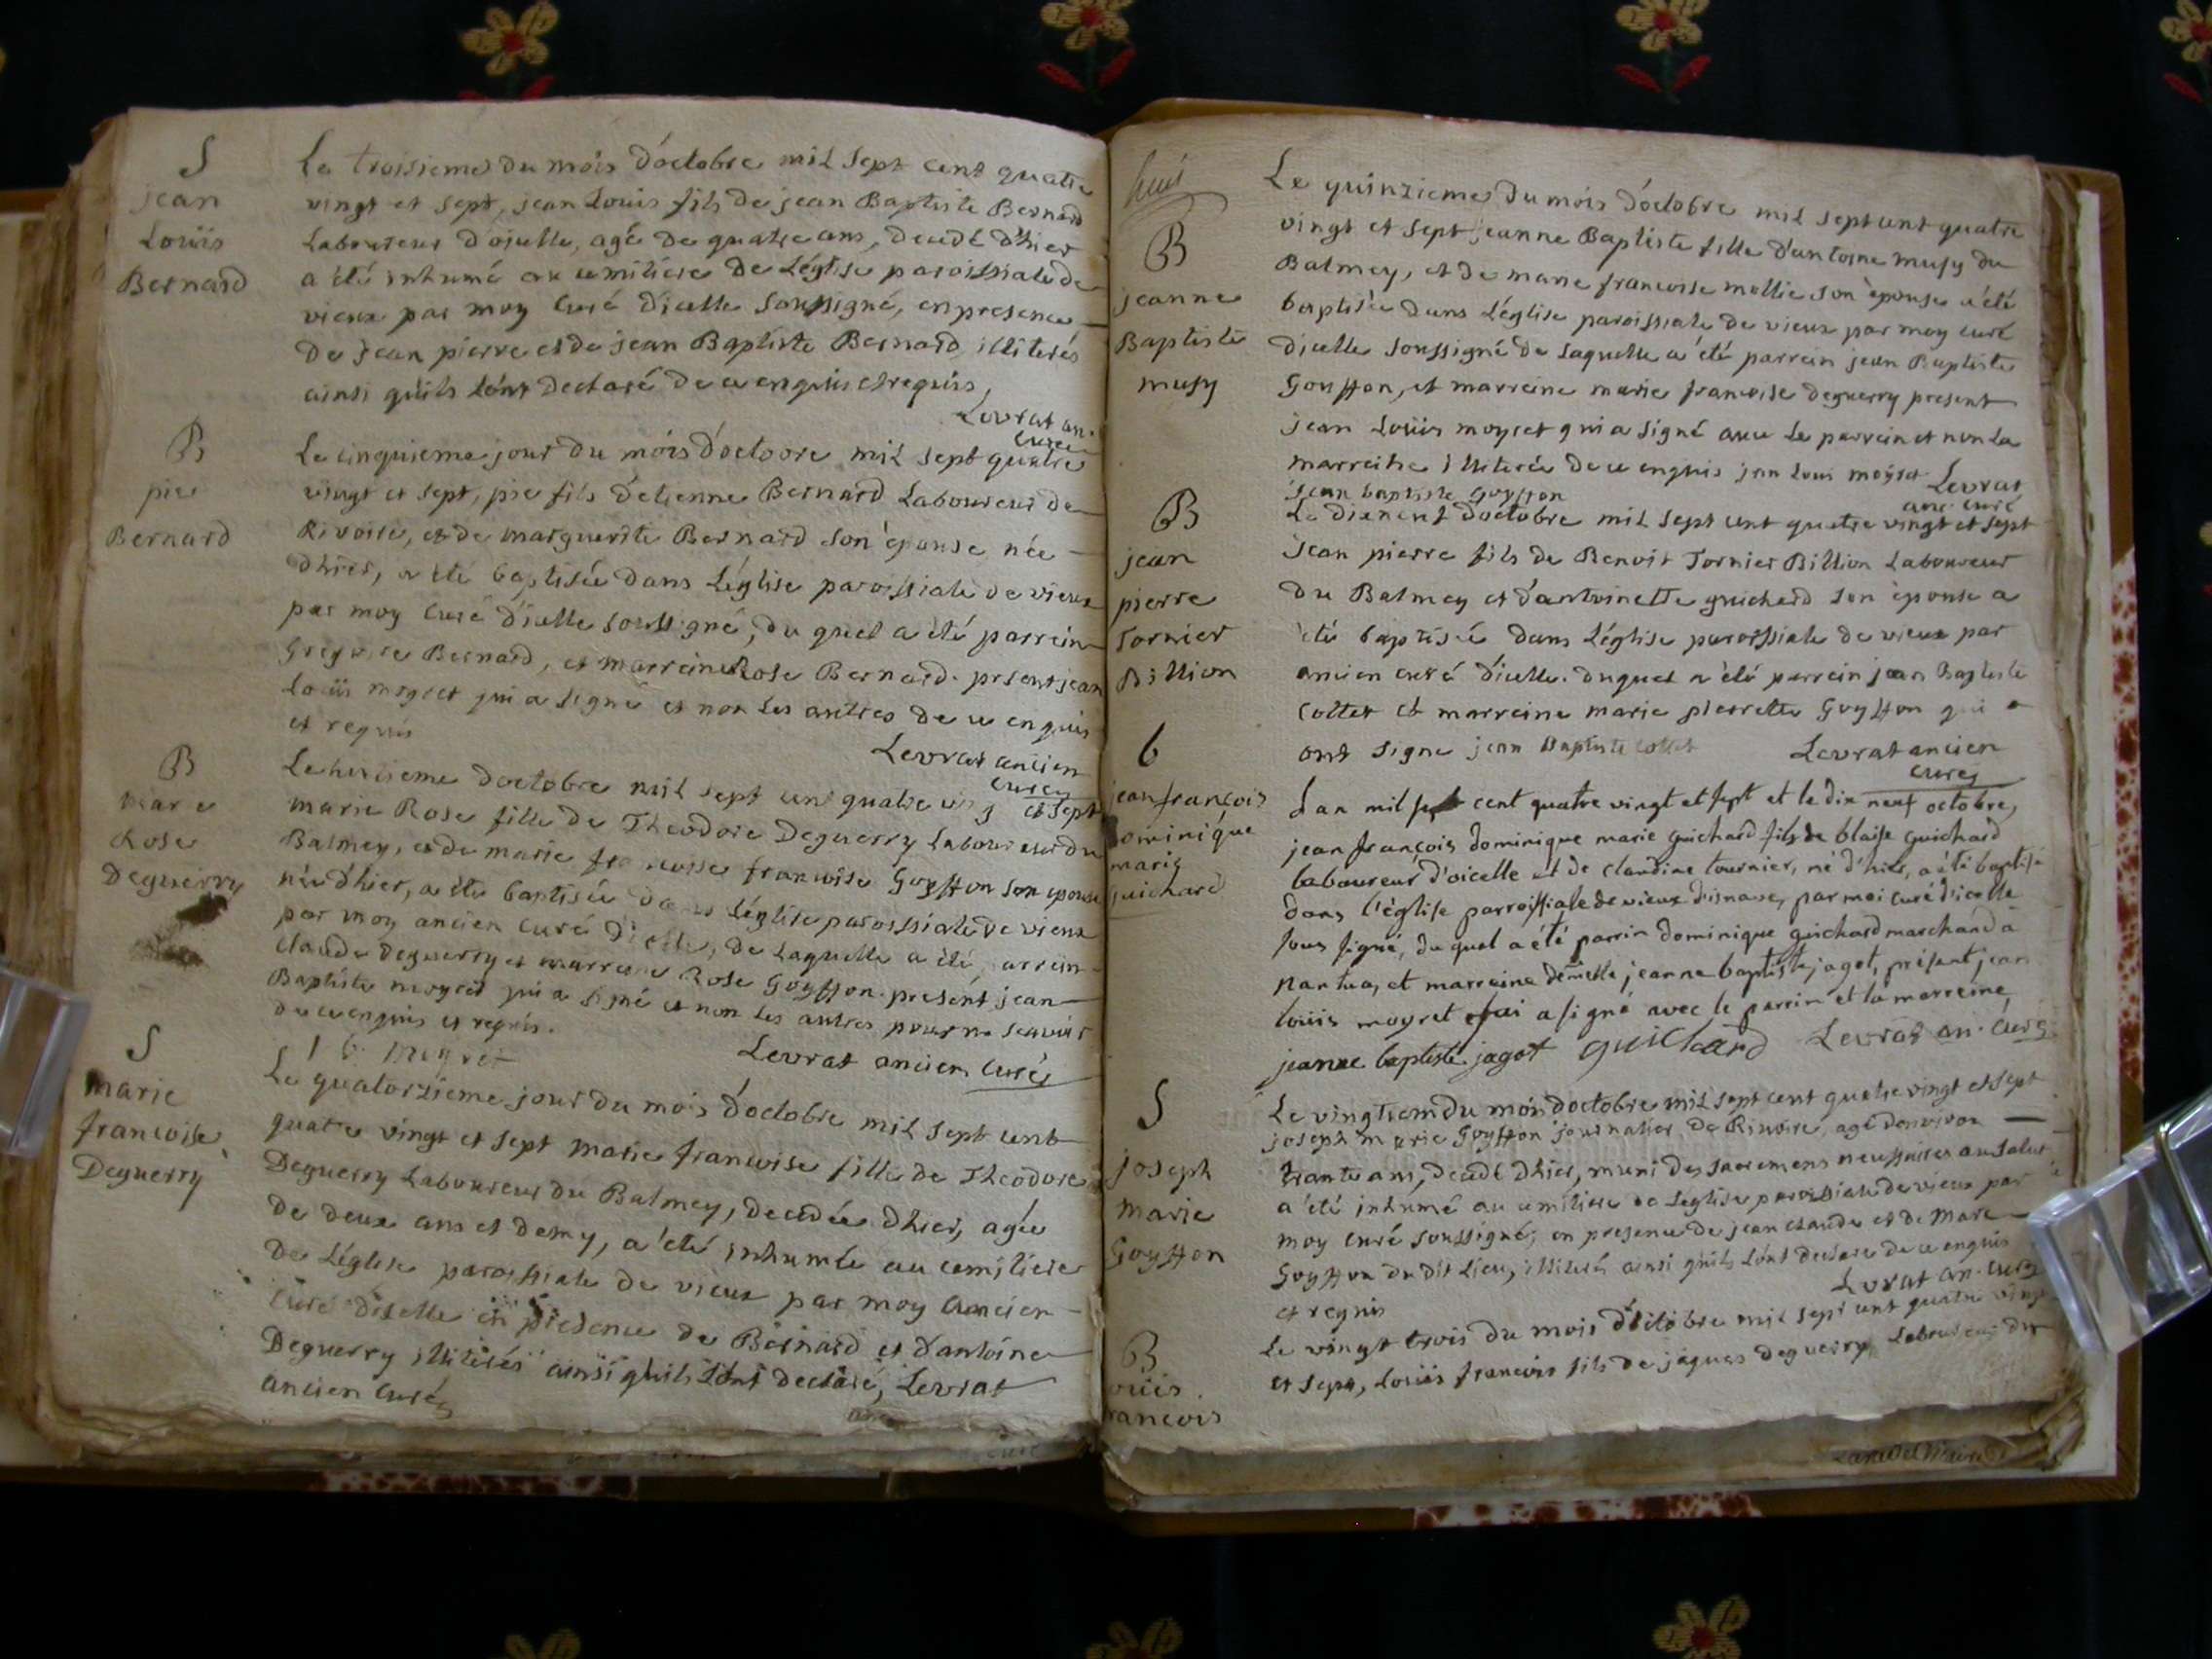 S
jean
Louis
Bernard
Le troisieme du mois d'octobre mil sept cent quatre
vingt et sept, jean Louis fils de jean Baptiste Bernard
Laboureur d'oiselle, agé de quatre ans, decedé d'hier
a été inhumé au cemitiere de Léglise paroissiale de
vieux par moy Curé d'icelle soussigné, en presence
de jean pierre et de jean Baptiste Bernard illiterés
ainsi qu'ils l'ont declaré de ce enquis et requis,
Levrat an.
Curé
B
pie
Bernard
Le cinquieme jour du mois d'octobre mil sept quatre
vingt et sept, pie fils d'etienne Bernard Laboureur de
Rivoire, et de marguerite Bernard son épouse née
d'hier, a été baptisée dans Léglise paroissiale de vieux
par moy Curé d'icelle soussigné, du quel a été parrein
Gregoire Bernard, et marreine Rose Bernard. present jean
Louis moyret qui a signé et non les autres de ce enquis
et requis
Levrat ancien
Curé
B
marie
Rose
Deguerry
Le huitieme d'octobre mil sept cent quatre ving et sept
marie Rose fille de Theodore Deguerry Laboureur du
Balmey, et de marie francoise francoise Goyffon son epouse
née d'hier, a été baptisée dans Léglise paroissiale de vieux
par moy ancien Curé d'icelle, de Laquelle a été parrein
Claude Deguerry et marreine Rose Goyffon. present jean
Baptiste moyret qui a signé et non les autres pour ne scavoir
de ce enquis et requis.
j b. moyret
Levrat ancien Curé
S
marie
francoise
Deguerry
Le quatorzieme jour du mois d'octobre mil sept cent
quatre vingt et sept marie francoise fille de Theodore
Deguerry Laboureur du Balmey, decedée d'hier, agée
de deux ans et demy, a été inhumée au cemitiere
de Léglise paroissiale de vieux par moy ancien
Curé diselle en presence de Bernard et d'antoine
Deguerry illiterés ainsi qu'ils l'ont declaré, Levrat
ancien Curé
huit
B
jeanne
Baptiste
musy
Le quinzieme du mois d'octobre mil sept cent quatre
vingt et sept jeanne Baptiste fille d'antoine musy du
Balmey, et de marie francoise mollie son épouse a été
baptisée dans Léglise paroissiale de vieux par moy curé
dicelle soussigné de laquelle a été parrein jean Baptiste
Goyffon, et marreine marie francoise deguerry present
jean Louis moyret qui a signé avec le parrein et non la
marreine illiterée de ce enquis jean louis moyret Levrat
jean baptiste Goyffon
anc. curé
B
jean
pierre
Tornier
Billion
Le dixneuf d'octobre mil sept cent quatre vingt et sept
jean pierre fils de Benoit Tornier Billion Laboureur
du Balmey et d'antoinette guichard son épouse a
été baptisé dans Léglise paroissiale de vieux par
ancien curé d'icelle. duquel a été parrein jean Baptiste
Collet et marreine marie pierrette Goyffon qui
ont signe jean Baptiste collet
Levrat ancien
curé
b
jean françois
dominique
marie
guichard
L'an mil sept cent quatre vingt et sept et le dix neuf octobre,
jean françois dominique marie guichard fils de blaise guichard
laboureur d'oicelle et de claudine tournier, né d'hier, a été baptisé
dans l'église parroissiale de vieux d'isnave, par moi curé d'icelle
sous signé, du quel a été parrin dominique guichard marchand à
nantua, et marreine demelle jeanne baptiste jagot, présent jean
louis moyret qui a signé avec le parrin et la marreine
jeanne baptiste jagot guichard Levrat an. curé
S
joseph
marie
Goyffon
Le vingtiem du mois d'octobre mil sept cent quatre vingt et sept
joseph marie Goyffon journalier de Rivoire, agé d'environ
trante ans, decedé d'hier, muni des sacremens necessaires au salut
a été inhumé au cemitiere de Leglise paroissiale de vieux par
moy curé soussigné, en presence de jean claude et de Marc
Goyffon du dit Lieu, illiterés ainsi qu'ils l'ont declare de ce enquis
et requis
Levrat an. curé
B
ouis
rancois
Le vingt trois du mois d'octobre mil sept cent quatre vingt
et sept, Louis francois fils de jaques deguerry Laboureur du